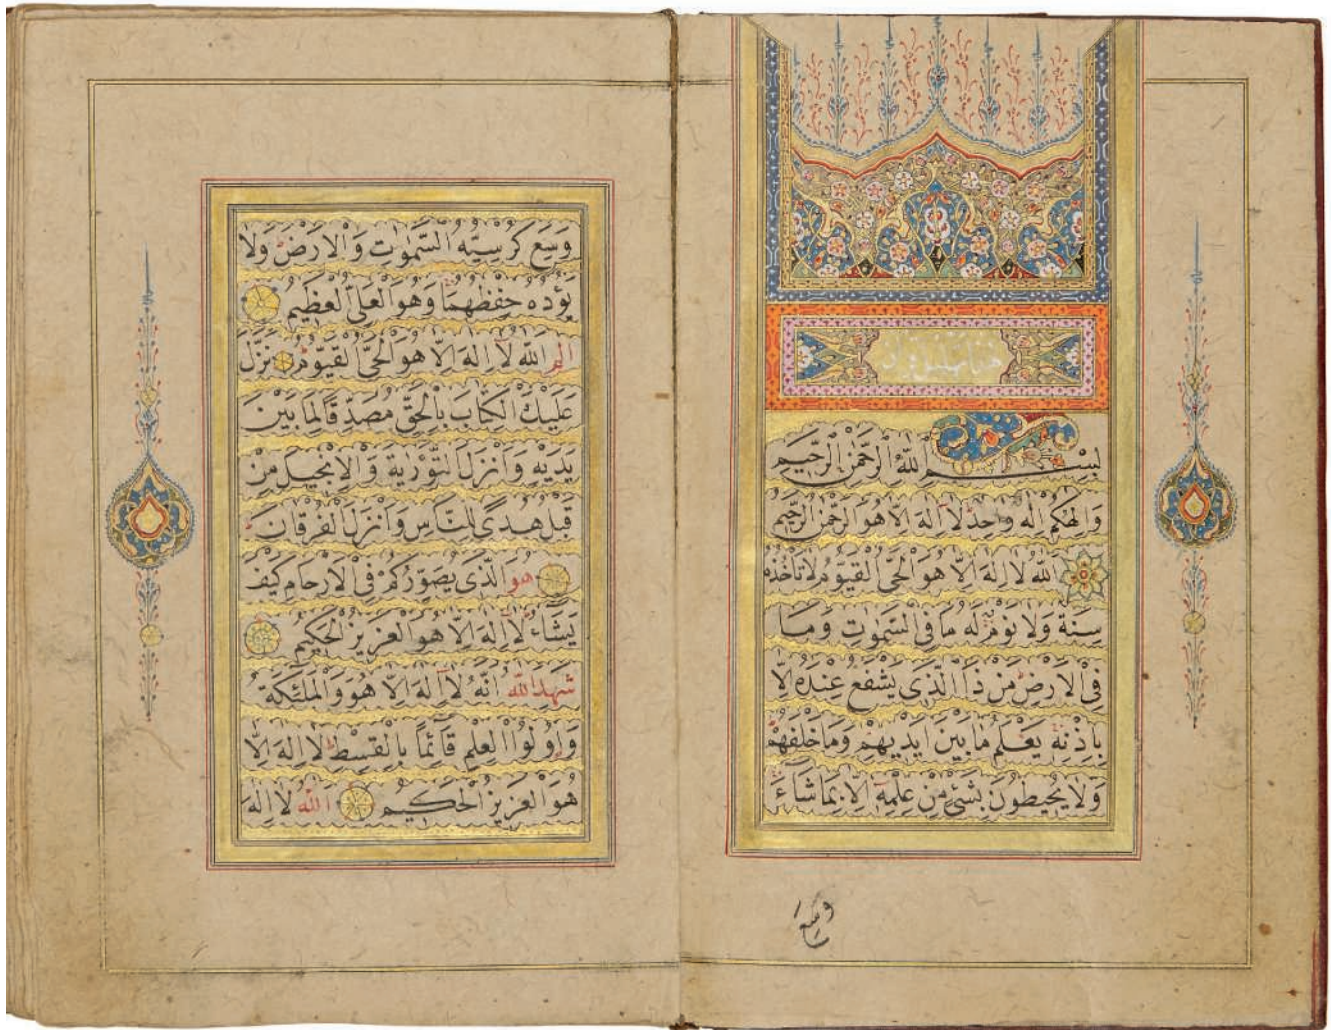 هذا تهليل قرآن
بسم الله الرحمن الرحيم
وَاِلٰهُكُمْ اِلٰهٌ وَاحِدٌ لَا اِلٰهَ اِلَّا هُوَ الرَّحْمٰنُ الرَّحِيمُ
اَللّٰهُ لَا اِلٰهَ اِلَّا هُوَ الْحَىُّ الْقَيُّومُ لَا تَأْخُذُهُ
سِنَةٌ وَلَا نَوْمٌ لَهُ مَا فِى السَّمٰوَاتِ وَمَا
فِى الْاَرْضِ مَنْ ذَا الَّذِى يَشْفَعُ عِنْدَهُ اِلَّا
بِاِذْنِهِ يَعْلَمُ مَا بَيْنَ اَيْدِيهِمْ وَمَا خَلْفَهُمْ
وَلَا يُحِيطُونَ بِشَىْءٍ مِنْ عِلْمِهِ اِلَّا بِمَا شَاءَ
وسع
وَسِعَ كُرْسِيُّهُ السَّمٰوَاتِ وَالْاَرْضَ وَلَا
يَؤُدُهُ حِفْظُهُمَا وَهُوَ الْعَلِىُّ الْعَظِيمُ
الم اَللّٰهُ لَا اِلٰهَ اِلَّا هُوَ الْحَىُّ الْقَيُّومُ نَزَّلَ
عَلَيْكَ الْكِتَابَ بِالْحَقِّ مُصَدِّقًا لِمَا بَيْنَ
يَدَيْهِ وَاَنْزَلَ التَّوْرٰيةَ وَالْاِنْجِيلَ مِنْ
قَبْلُ هُدًى لِلنَّاسِ وَاَنْزَلَ الْفُرْقَانَ
هُوَ الَّذِى يُصَوِّرُكُمْ فِى الْاَرْحَامِ كَيْفَ
يَشَاءُ لَا اِلٰهَ اِلَّا هُوَ الْعَزِيزُ الْحَكِيمُ
شَهِدَ اللّٰهُ اَنَّهُ لَا اِلٰهَ اِلَّا هُوَ وَالْمَلٰئِكَةُ
وَاُولُوا الْعِلْمِ قَائِمًا بِالْقِسْطِ لَا اِلٰهَ اِلَّا
هُوَ الْعَزِيزُ الْحَكِيمُ اَللّٰهُ لَا اِلٰهَ